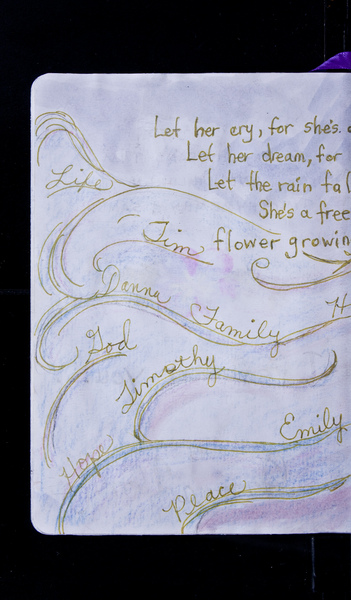 Let her cry, for she's a
Let her dream, for
Let the rain fal
She's a free
flower growing
Life
Tim
Danna
Family
H
God
Timothy
Emily
Hope
Peace